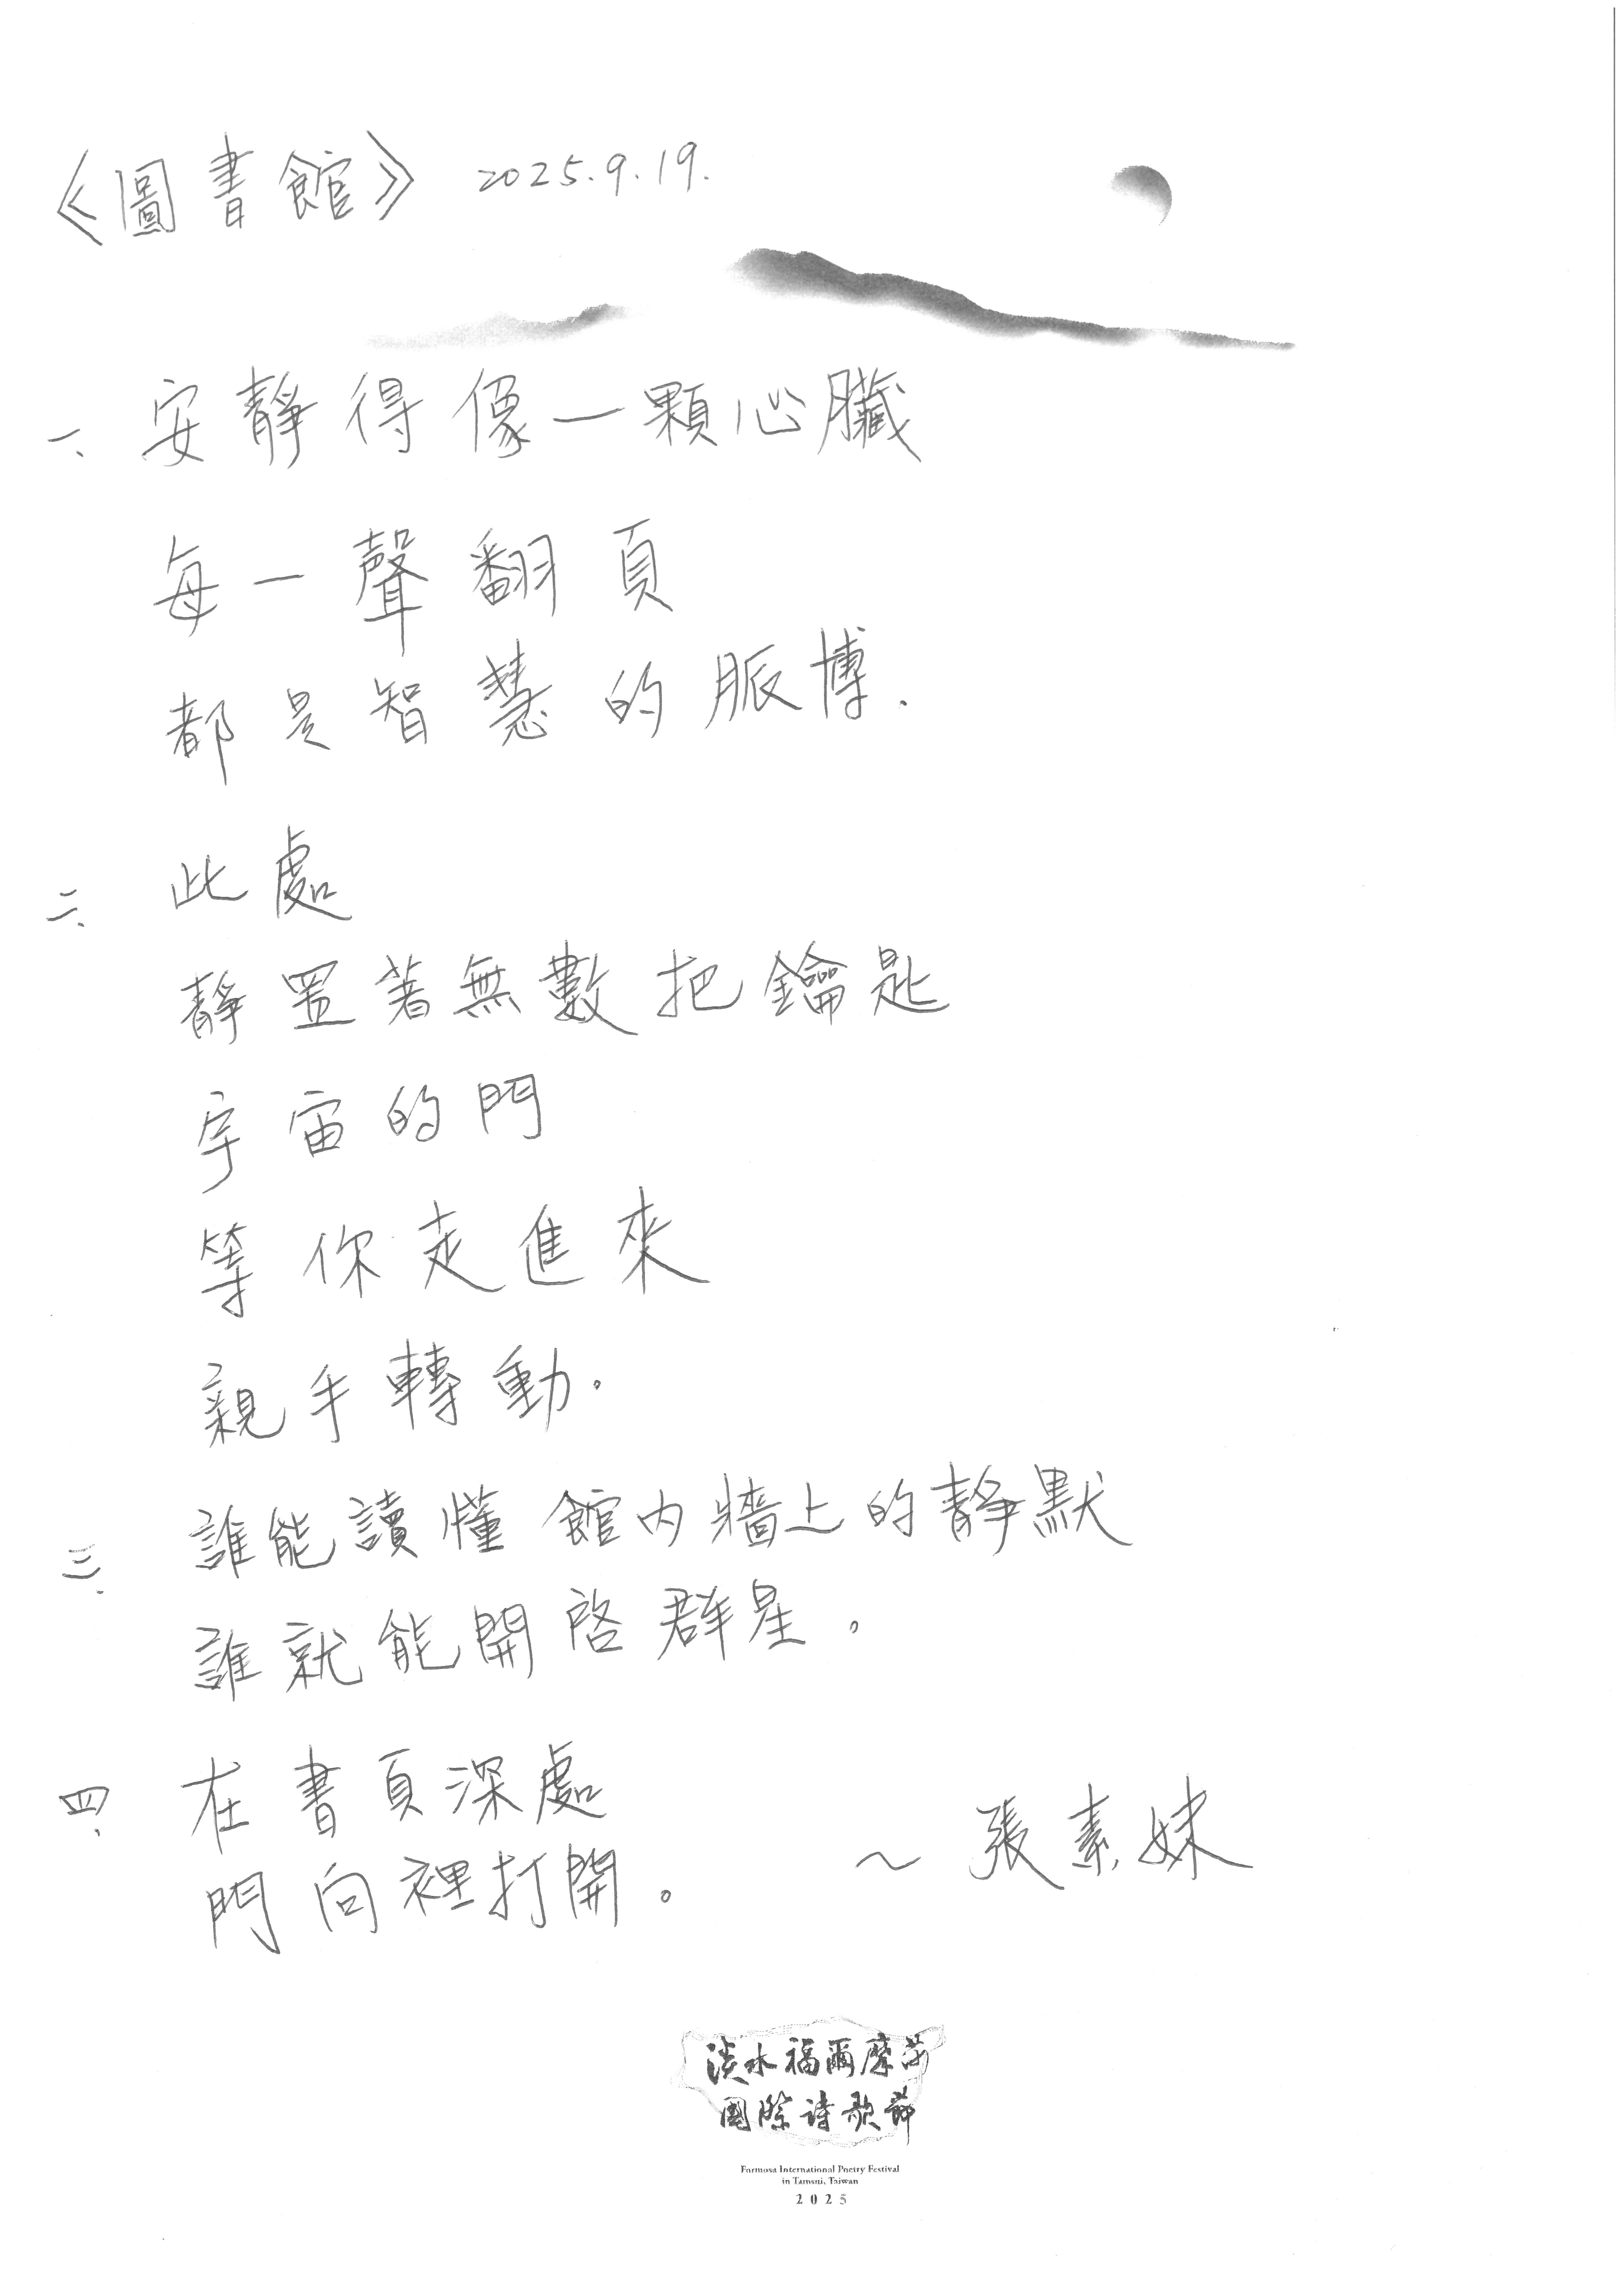 《圖書館》 2025.9.19.
一、安靜得像一顆心臟
每一聲翻頁
都是智慧的脈博.
二、此處
靜置著無數把鑰匙
宇宙的門
等你走進來
親手轉動。
三、誰能讀懂館內牆上的靜默
誰就能開啓群星。
四、在書頁深處
門向裡打開。
~張素妹
淡水福爾摩莎
國際詩歌節
Formosa International Poetry Festival
in Tamsui, Taiwan
2025